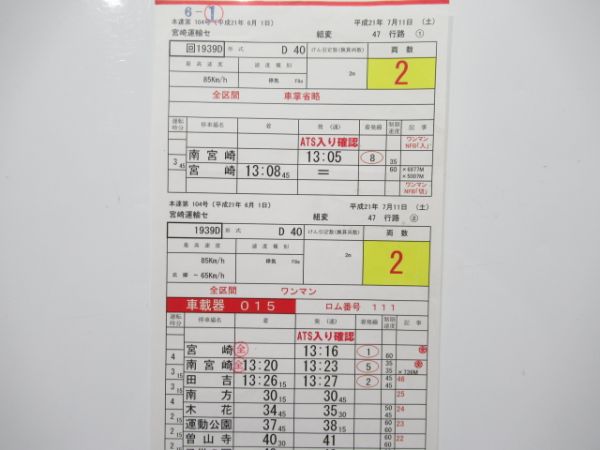 6-①
本達第 104号（平成21年 6月 1日） 平成21年 7月11日 （土）
宮崎運輸セ 組変 47 行路 ①
回1939D 形式 D 40 けん引定数(換算両数) 両数
最高速度 速度種別 2
85Km/h 停気 2m
全区間 車掌省略
運転時分 停車場名 着 発（通） 着発線 制限速度 記事
ATS入り確認 ワンマンNFB「入」
南宮崎 13:05 8 35
3 45 宮崎 13:08 45 ＝ 60 ×6877M ×5007M
ワンマンNFB「切」
本達第 104号（平成21年 6月 1日） 平成21年 7月11日 （土）
宮崎運輸セ 組変 47 行路 ②
1939D 形式 D 40 けん引定数(換算両数) 両数
最高速度 速度種別 2
85Km/h 停気 2m
－65Km/h
全区間 ワンマン
車載器 015 ロム番号 111
運転時分 停車場名 着 発（通） 着発線 制限速度 記事
ATS入り確認
宮崎 全 13:16 1 60
4 南宮崎 全 13:20 13:23 5 35 35
3 15 田吉 13:26 15 13:27 2 45 45 46
3 15 南方 30 15 30 45 25
4 木花 34 45 35 30 50 45 24
2 15 運動公園 37 45 38 15 60 60 23
2 15 曽山寺 40 30 41 60 22